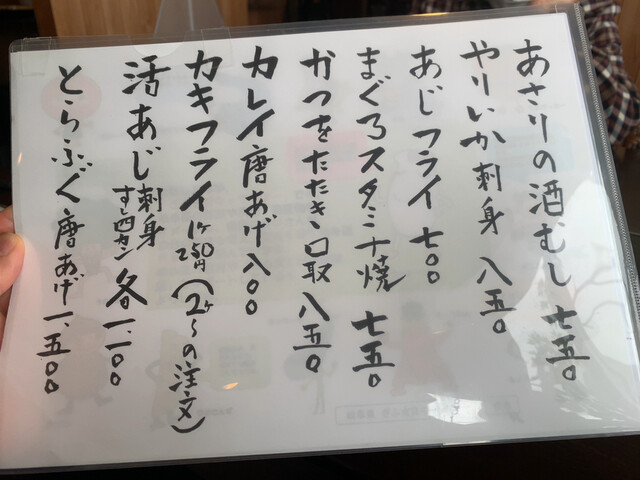 あさりの酒むし 七五〇
やりいか刺身 八五〇
あじフライ 七〇〇
まぐろスタミナ焼 七五〇
かつをたたき 八五〇
カレイ唐あげ 八〇〇
カキフライ 1ヶ250円(2ヶ〜の注文)
活あじ刺身 すし四カン 各一、一〇〇
とらふぐ唐あげ 一、五〇〇